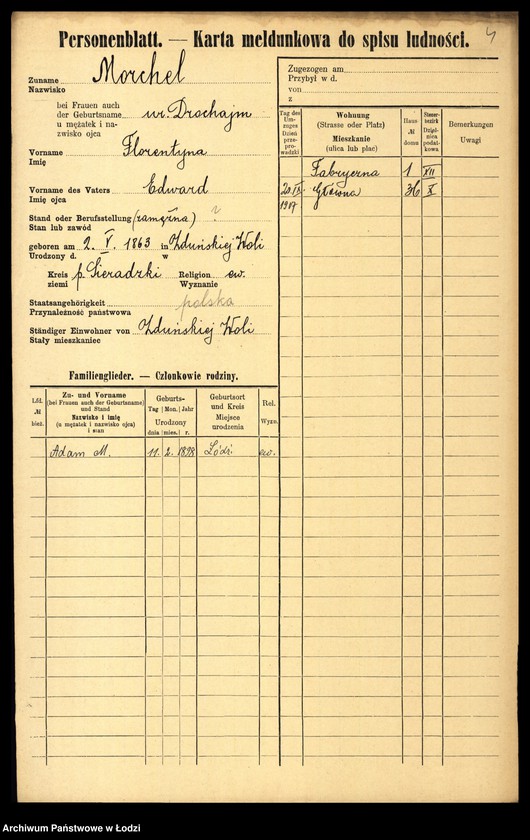 4
Personenblatt. — Karta meldunkowa do spisu ludności.
Zuname Morchel
Nazwisko
bei Frauen auch
der Geburtsname ur. Drachajm
u mężatek i na-
zwisko ojca
Vorname Florentyna
Imię
Vorname des Vaters Edward
Imię ojca
Stand oder Berufsstellung (zamężna) ?
Stan lub zawód
geboren am 2. V. 1863 in Zduńskiej Woli
Urodzony d. w
Kreis p. Sieradzki Religion ew.
ziemi Wyznanie
Staatsangehörigkeit polska
Przynależność państwowa
Ständiger Einwohner von Zduńskiej Woli
Stały mieszkaniec
Zugezogen am
Przybył w d.
von
z
Tag des Um-zuges Dzień prze-prowadzki
Wohnung (Strasse oder Platz) Mieszkanie (ulica lub plac)
Haus № domu
Steuer-bezirk Dziel-nica podat-kowa
Bemerkungen Uwagi
Fabryczna 1 XII
20.IX. 1917 Główna 36 X
Familienglieder. — Członkowie rodziny.
Lfd. № bież.
Zu- und Vorname (bei Frauen auch der Geburtsname) und Stand Nazwisko i imię (u mężatek i nazwisko ojca) i stan
Geburts- Tag Mon. Jahr Urodzony dnia mies. r.
Geburtsort und Kreis Miejsce urodzenia
Rel. Wyzn.
Adam M. 11. 2. 1898 Łódź. ew.
Archiwum Państwowe w Łodzi